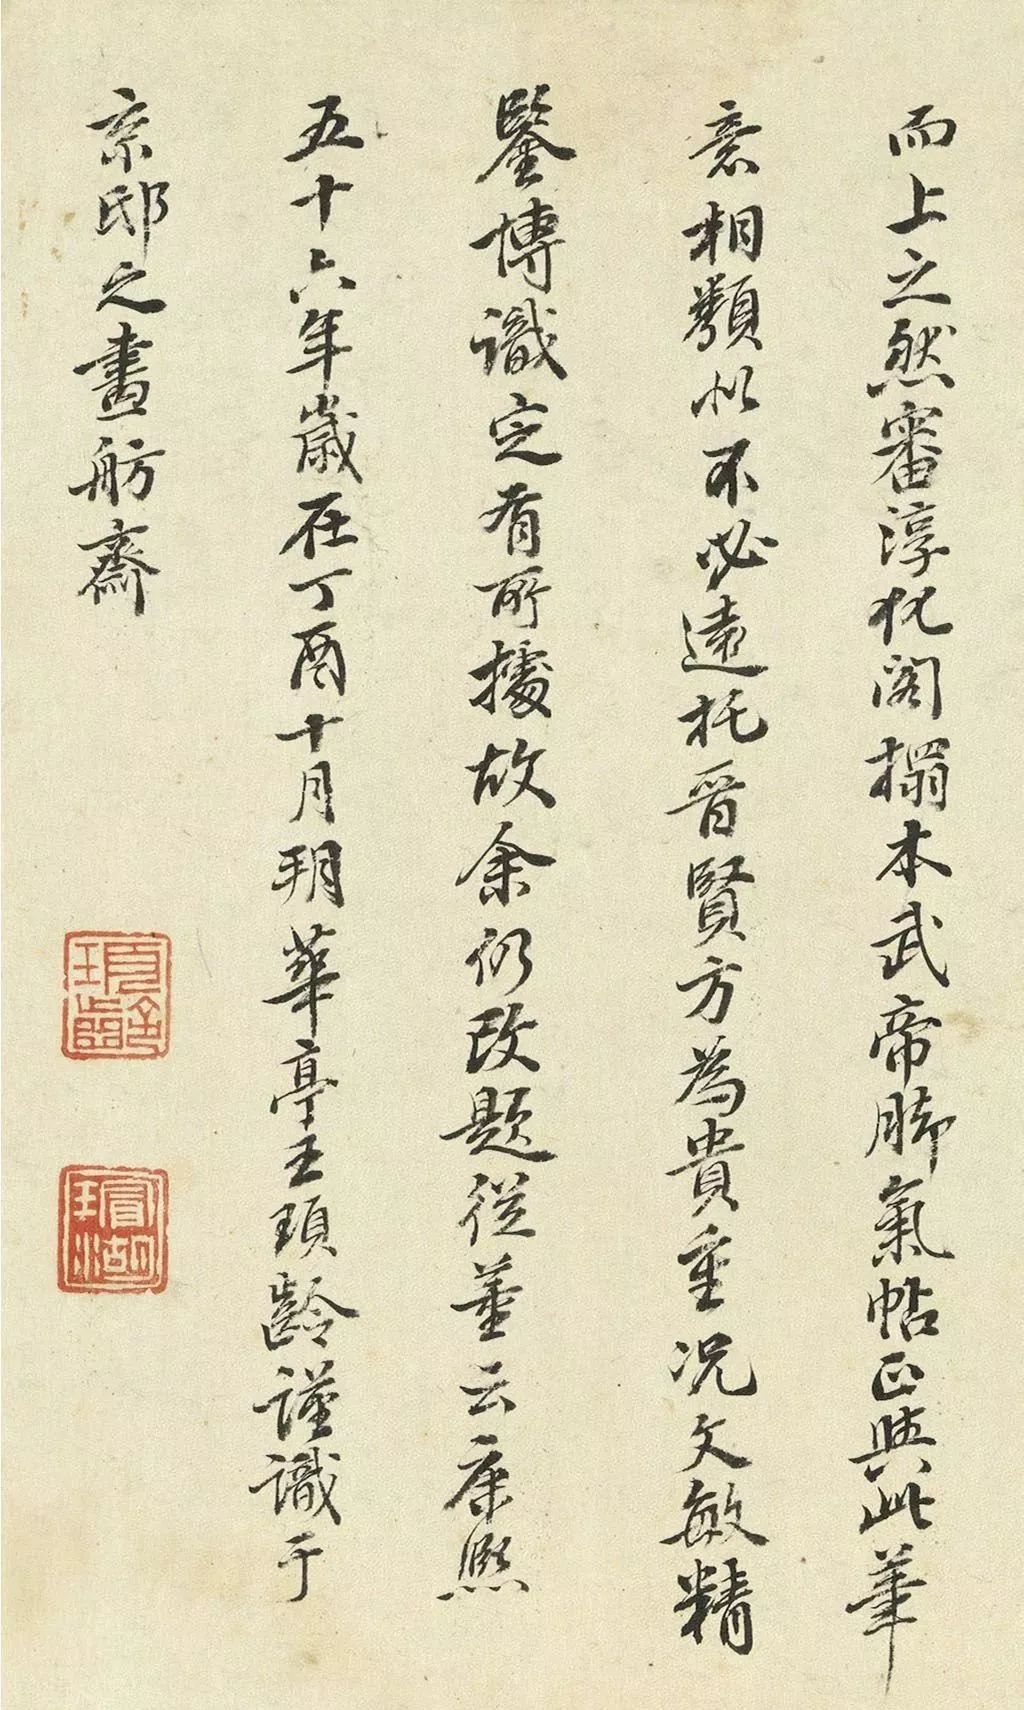 而上之然審淳化閣搨本武帝脚氣帖正與此筆
意相類似不必遠托晉賢方為貴重況文敏精
鑒博識定有所據故余仍改題從董云康熙
五十六年歲在丁酉十月朔華亭王頊齡謹識于
京邸之畫舫齋
頊齡
瑁湖